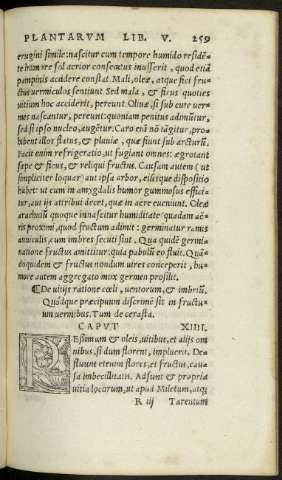 PLANTARVM LIB. V. 259
erugini simile: nascitur cum tempore humido residẽ-
te imbre sol acrior consecutus inusserit, quod etiã
pampinis accidere constat. Mali, oleæ, atque fici fru-
ctus vermiculos sentiunt. Sed mala, & ficus quoties
uitium hoc acciderit, pereunt. Oliuæ, si sub cute ver-
mes nascantur, pereunt: quoniam penitus admittũt,
sed si ipso nucleo, augẽtur. Caro enĩ nõ tãgitur, pro-
hibent illos status, & pluuiæ, quæ fiunt sub arcturũ.
Facit enim refrigeratio, ut fugiant omnes: ægrotant
sæpe & ficus, & reliqui fructus. Causam autem (ut
simpliciter loquar) aut ipsa arbor, eiusque dispositio
habet: ut cum in amygdalis humor gummosus effici-
tur, aut ijs attribui decet, quæ in aere eueniunt. Oleæ
arachnũ quoque innascitur humiditate quadam aë-
ris proximi, quod fructum adimit: germinatur ramis
anniculis, cum imbres secuti sint. Qua quidẽ germi-
natione fructus amittitur: quia pabulũ eo fluit. Quã-
doquidem & fructus nondum uires conceperit, hu-
more autem aggregato mox germen prosilit.
¶ De uitijs ratione cœli, uentorum, & imbriũ.
Quódque præcipuum discrimẽ sit in fructu-
um uermibus. Tum de cerasta.
CAPVT XIIII.
PEssimum & oleis, uitibus, et alijs om
nibus, si dum florent, impluerit. De-
fluunt etenim flores, et fructus, cau-
sa imbecillitatis. Adsunt & propria
uitia locorum, ut apud Miletum, atque
R iij Tarentum